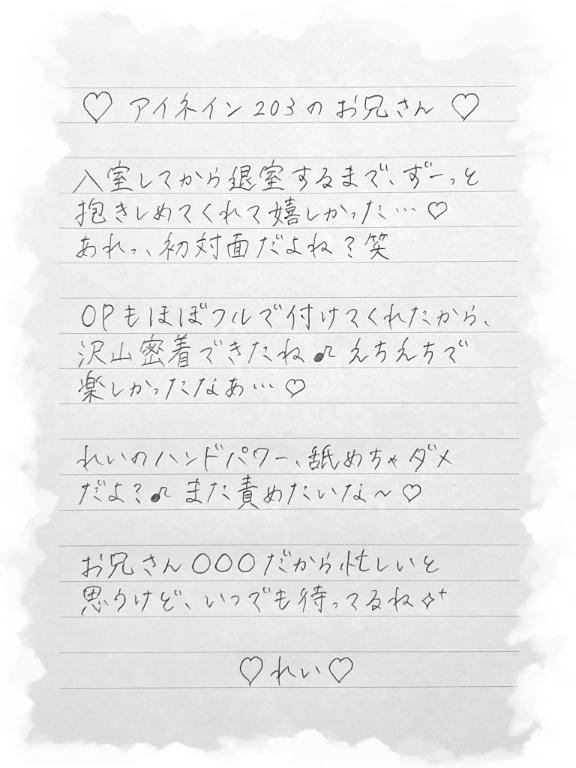 ♡ アイネイン203のお兄さん ♡
入室してから退室するまで、ずーっと
抱きしめてくれて嬉しかった…♡
あれっ、初対面だよね？笑
OPもほぼフルで付けてくれたから、
沢山密着できたね♪えちえちで
楽しかったなぁ…♡
れいのハンドパワー、舐めちゃダメ
だよ？♪また責めたいな〜♡
お兄さん〇〇〇だから忙しいと
思うけど、いつでも待ってるね✧⁺
♡れい♡